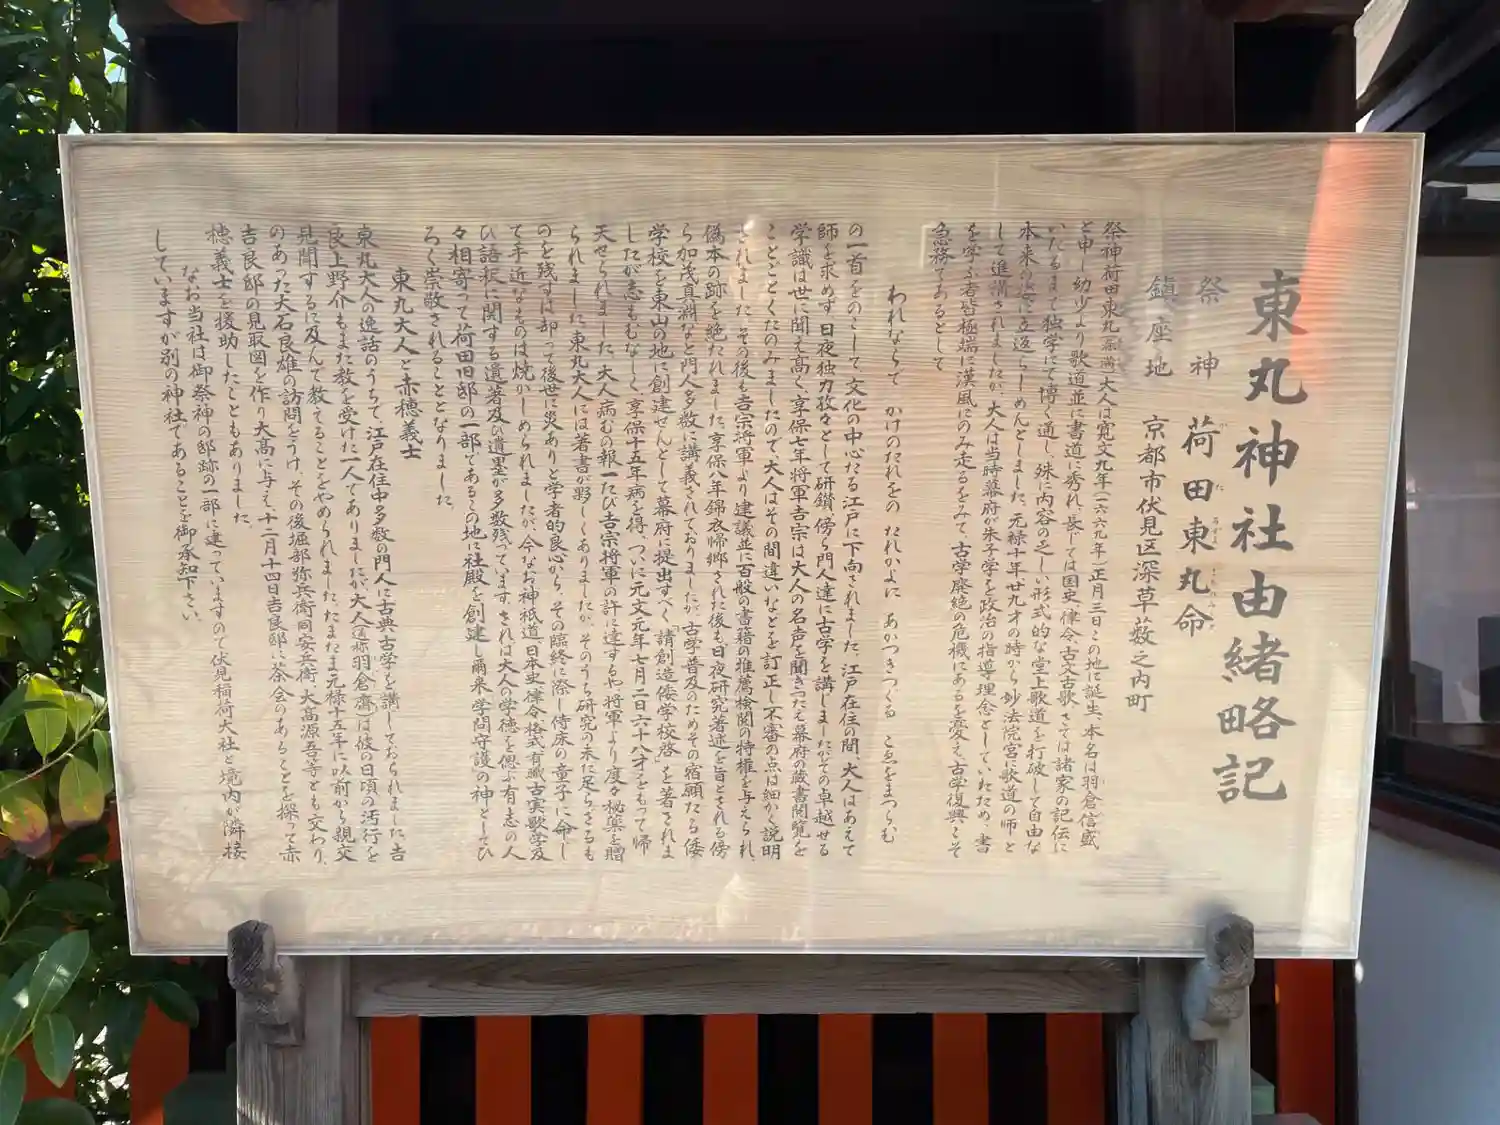 東丸神社由緒略記
祭神 荷田東丸命
鎮座地 京都市伏見区深草薮之内町
祭神荷田東丸大人は寛文九年(一六六九年)正月三日この地に誕生、本名は羽倉信盛
と申し幼少より歌道並に書道に秀れ、長じては国史、律令古文古歌、さては諸家の記伝に
いたるまで独学にて博く通し、殊に内容の乏しい形式的な堂上歌道を打破して自由な
本来の姿に立返らしめんとしました。元禄十年廿九才の時から妙法院宮に歌道の師と
して進講されましたが、大人は当時幕府が朱子学を政治の指導理念としていたため、書
を学ぶ者皆極端に漢風にのみ走るをみて、古学廃絶の危機にあるを憂え古学復興こそ
急務であるとして
われならで かけのたれをの たれかよに あかつきつくる こゑをまつらむ
の一首をのこして文化の中心たる江戸に下向されました。江戸在住の間、大人はあえて
師を求めず、日夜独力孜々として研鑚、傍ら門人達に古学を講じましたがその卓越せる
学識は世に聞え高く、享保七年将軍吉宗は大人の名声を聞きつたえ幕府の蔵書閲覧を
ことごとくたのみましたので、大人はその間違いなどを訂正し不審の点は細かく説明
されました。その後も吉宗将軍より建議並に百般の書籍の推薦検閲の特権を与えられ、
偽本の跡を絶たれました。享保八年錦衣帰郷された後も、日夜研究著述を旨とされる傍
ら加茂真淵など門人多数に講義されておりましたが、古学普及のためその宿願たる倭
学校を東山の地に創建せんとして幕府に提出すべく「請創造倭学校啓」を著されま
したが志もむなしく享保十五年病を得、ついに元文元年七月二日六十八才をもって帰
天せられました。大人病むの報一たび吉宗将軍の許に達するや、将軍より度々秘薬を贈
られました。東丸大人には著書が夥しくありましたが、そのうち研究の未だ足らざるも
のを残すは却って後世に災ありと学者的良心から、その臨終に際し侍床の童子に命じ
て手近なものは焼かしめられましたが、今なお神祇道、日本史、律令格式、有職古実、歌学及
ひ語釈に関する遺著及び遺墨が多数残っています。されば大人の学徳を偲ぶ有志の人
々相寄って荷田田邸の一部であるこの地に社殿を創建し爾来、学問守護の神としてひ
ろく崇敬されることとなりました。
東丸大人と赤穂義士
東丸大人の逸話のうちで、江戸在住中多数の門人に古典・古学を講じておられました。吉
良上野介もまた教を受けた一人でありましたが、大人(通称羽倉斎)は彼の日頃の汚行を
見聞するに及んで教えることをやめられました。たまたま元禄十五年に以前から親交
のあった大石良雄の訪問をうけ、その後堀部弥兵衛、同安兵衛、大高源吾等とも交わり、
吉良邸の見取図を作り大高に与え、十二月十四日吉良邸に茶会のあることを探って赤
穂義士を援助したこともありました。
なお当社は御祭神の邸跡の一部に建っていますので伏見稲荷大社と境内が隣接
していますが別の神社であることを御承知下さい。